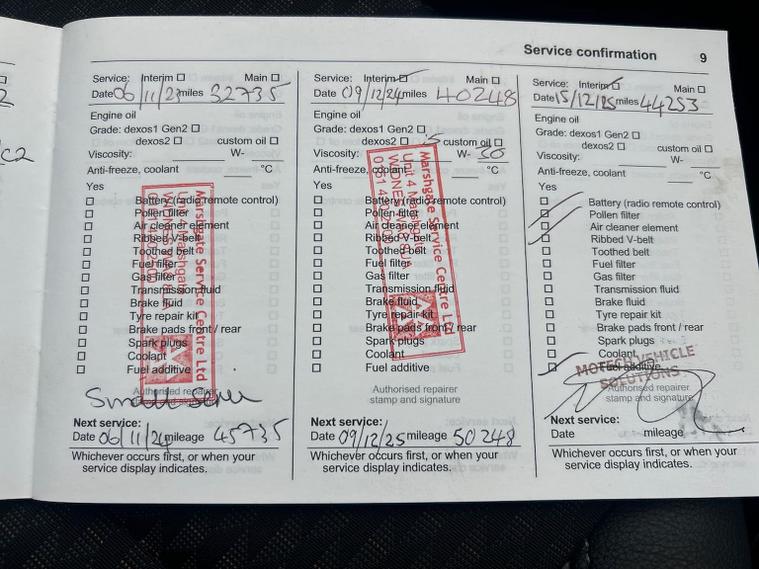 Service confirmation 9
2
C2
Service: Interim Main
Date 06/11/23 miles 32735
Engine oil
Grade: dexos1 Gen2
dexos2 custom oil
Viscosity: W-
Anti-freeze, coolant °C
Yes
Battery (radio remote control)
Pollen filter
Air cleaner element
Ribbed V-belt
Toothed belt
Fuel filter
Gas filter
Transmission fluid
Brake fluid
Tyre repair kit
Brake pads front / rear
Spark plugs
Coolant
Fuel additive
Marshgate Service Centre Ltd
Unit 4 Marshgate
Authorised repairer
Small
Next service:
Date 06/11/24 mileage 45735
Whichever occurs first, or when your
service display indicates.
Service: Interim Main
Date 09/12/24 miles 40248
Engine oil
Grade: dexos1 Gen2
dexos2 custom oil
Viscosity: 5 W- 30
Anti-freeze, coolant °C
Yes
Battery (radio remote control)
Pollen filter
Air cleaner element
Ribbed V-belt
Toothed belt
Fuel filter
Gas filter
Transmission fluid
Brake fluid
Tyre repair kit
Brake pads front / rear
Spark plugs
Coolant
Fuel additive
Marshgate Service Centre Ltd
Unit 4 Marshgate
Authorised repairer
stamp and signature
Next service:
Date 09/12/25 mileage 50248
Whichever occurs first, or when your
service display indicates.
Service: Interim Main
Date 15/12/25 miles 44253
Engine oil
Grade: dexos1 Gen2
dexos2 custom oil
Viscosity: W-
Anti-freeze, coolant °C
Yes
Battery (radio remote control)
Pollen filter
Air cleaner element
Ribbed V-belt
Toothed belt
Fuel filter
Gas filter
Transmission fluid
Brake fluid
Tyre repair kit
Brake pads front / rear
Spark plugs
Coolant
Fuel additive
MOTECH VEHICLE
SOLUTIONS
Authorised repairer
stamp and signature
Next service:
Date mileage
Whichever occurs first, or when your
service display indicates.